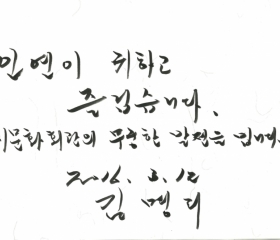 인연이 귀하고
즐겁습니다.
문화회관의 무궁한 발전을
2016. 3. 12
김